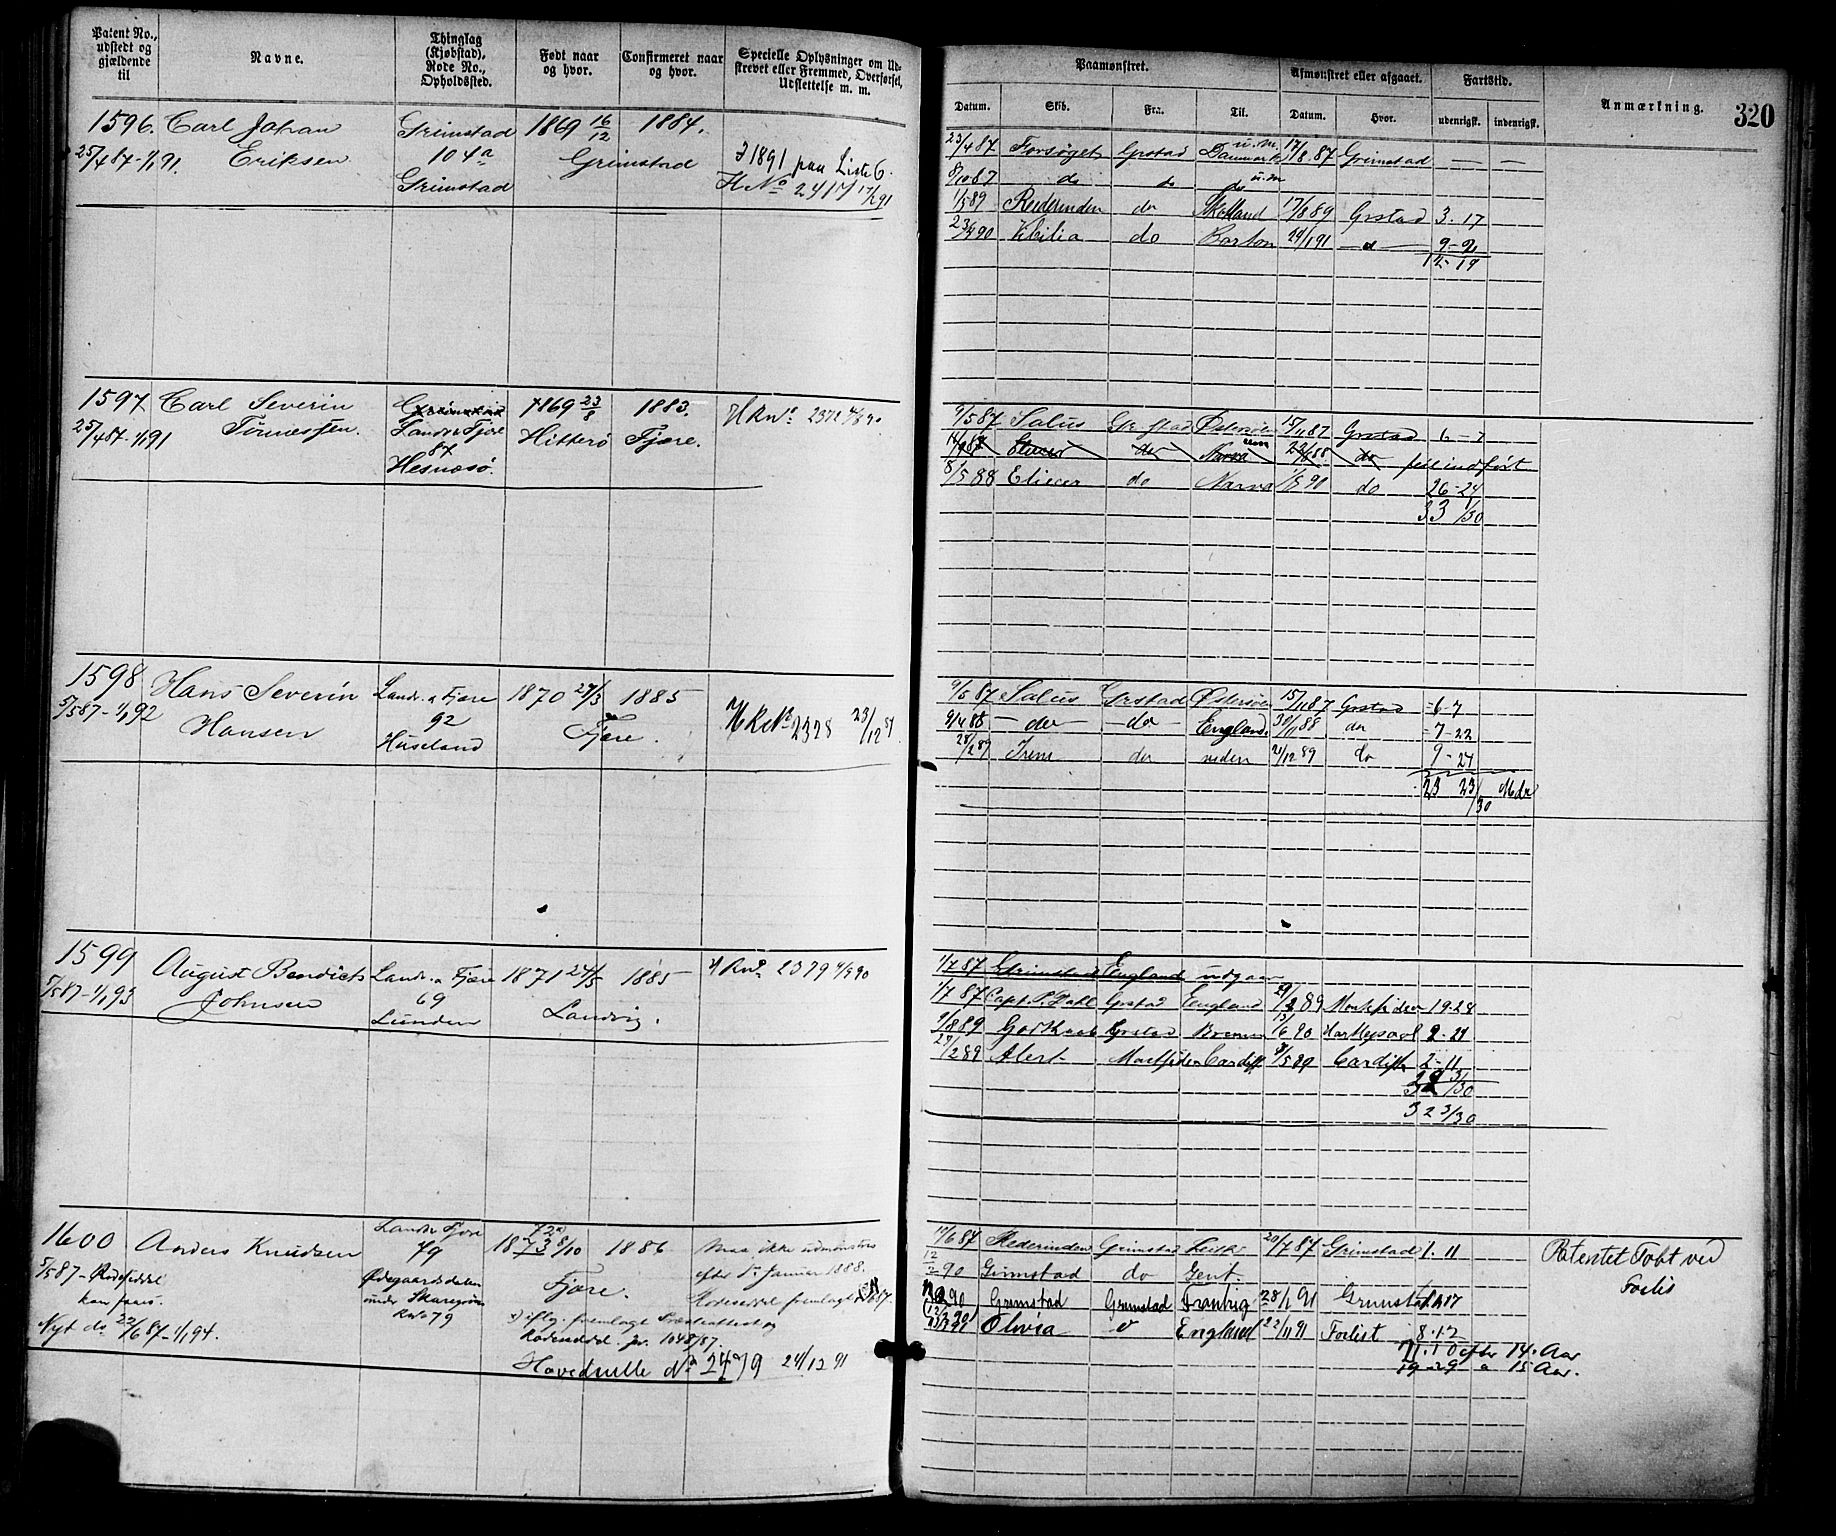 Patent No., udstedt og gjældende til
Navne.
Thinglag (Kjøbstad), Rode No., Opholdssted.
Født naar og hvor.
Confirmeret naar og hvor.
Specielle Oplysninger om Udskrevet eller Fremmed, Overførsel, Udslettelse m. m.
Paamønstret.
Afmønstret eller afgaaet.
Fartstid.
Anmærkning.
320
Datum. Skib. Fra. Til. Datum. Hvor. udenrigsk. indenrigsk.
1596. Carl Johan Grimstad 1869 16/12 1884.
25/4 87-1/1 91. Eriksen 104a Grimstad 1891 paa Liste 6.
Grimstad H No 2417 17/2 91
23/4 87 Forsøget Grstad Danmark u.m. 17/8 87 Grimstad — —
8/10 87 do do do u.m
1/5 89 Rederinden do 17/8 89 Grstad 3.17
23/4 90 do 24/1 91 — d — 9-2
12-19
1597 Carl Severin Grimstad 1869 23/8 1883. HRNo. 2372
25/4 87-1/1 91 Tønnessen. Landv. Fjære Hitterø Fjære.
87
Hesnæsø.
9/5 87 Salus Grstad Østersøen 15/11 87 Grstad 6-7
Eliecer do Narva do feilindført
8/5 88 Eliecer do Narva 1/8 90 do 26-24
33 1/30
1598 Hans Severin Landv. a Fjære 1870 27/3 1885
5/5 87-1/1 92 Hansen 92 Fjære. HRNo 2328 23/12 89
Huseland
9/5 87 Salus Grstad Østersøen 15/11 87 Grstad 6-7
9/4 88 — do — do England 30/11 88 do 7-22
28/2 89 Irene do neden 21/12 89 do 9-24
23 23/30 Mdr
1599 August Bendict Landv. a Fjære 1871 24/5 1885 HRNo 2379 4/9 90
5/5 87-1/1 93 Johnsen 69 Landvig.
Lunden
1/7 87 Grimstad England udgaar
1/7 87 Capt. P. Dahl Grstad England 29/2 89 19-28
9/8 89 Godthaab Grstad Bremen 13/6 90 2-24
28/2 89 Alert Cardiff 8/5 89 Cardiff 2-11
32 3/30
32 3/30
1600 Anders Knudsen Landv. Fjære 1873 8/10 1886 Maa ikke udmønstres
5/5 87-Rodeseddel 79 72x) efter 1ste Januar 1888.
kan faaes. Ødegaardsdalen Fjære. Rodeseddel fremlagt
under Skaregrøm x) iflg. fremlagt Præsteattest og
Nyt do 22/6 87-1/1 94. Rode 79 Rodeseddel jr. 1048/87.
Hovedrulle No 2479 24/12 91
11/6 87 Rederinden Grimstad Leith 20/7 87 Grimstad 1. 11
12/2 90 Grimstad do Gent.
Grimstad Grimstad 28/1 91 Grimstad
Olivia d England 22/11 91 Forlist 8.12
efter 14. Aar
19-29 a 15 Aar.
Patentet Tabt ved
Forlis